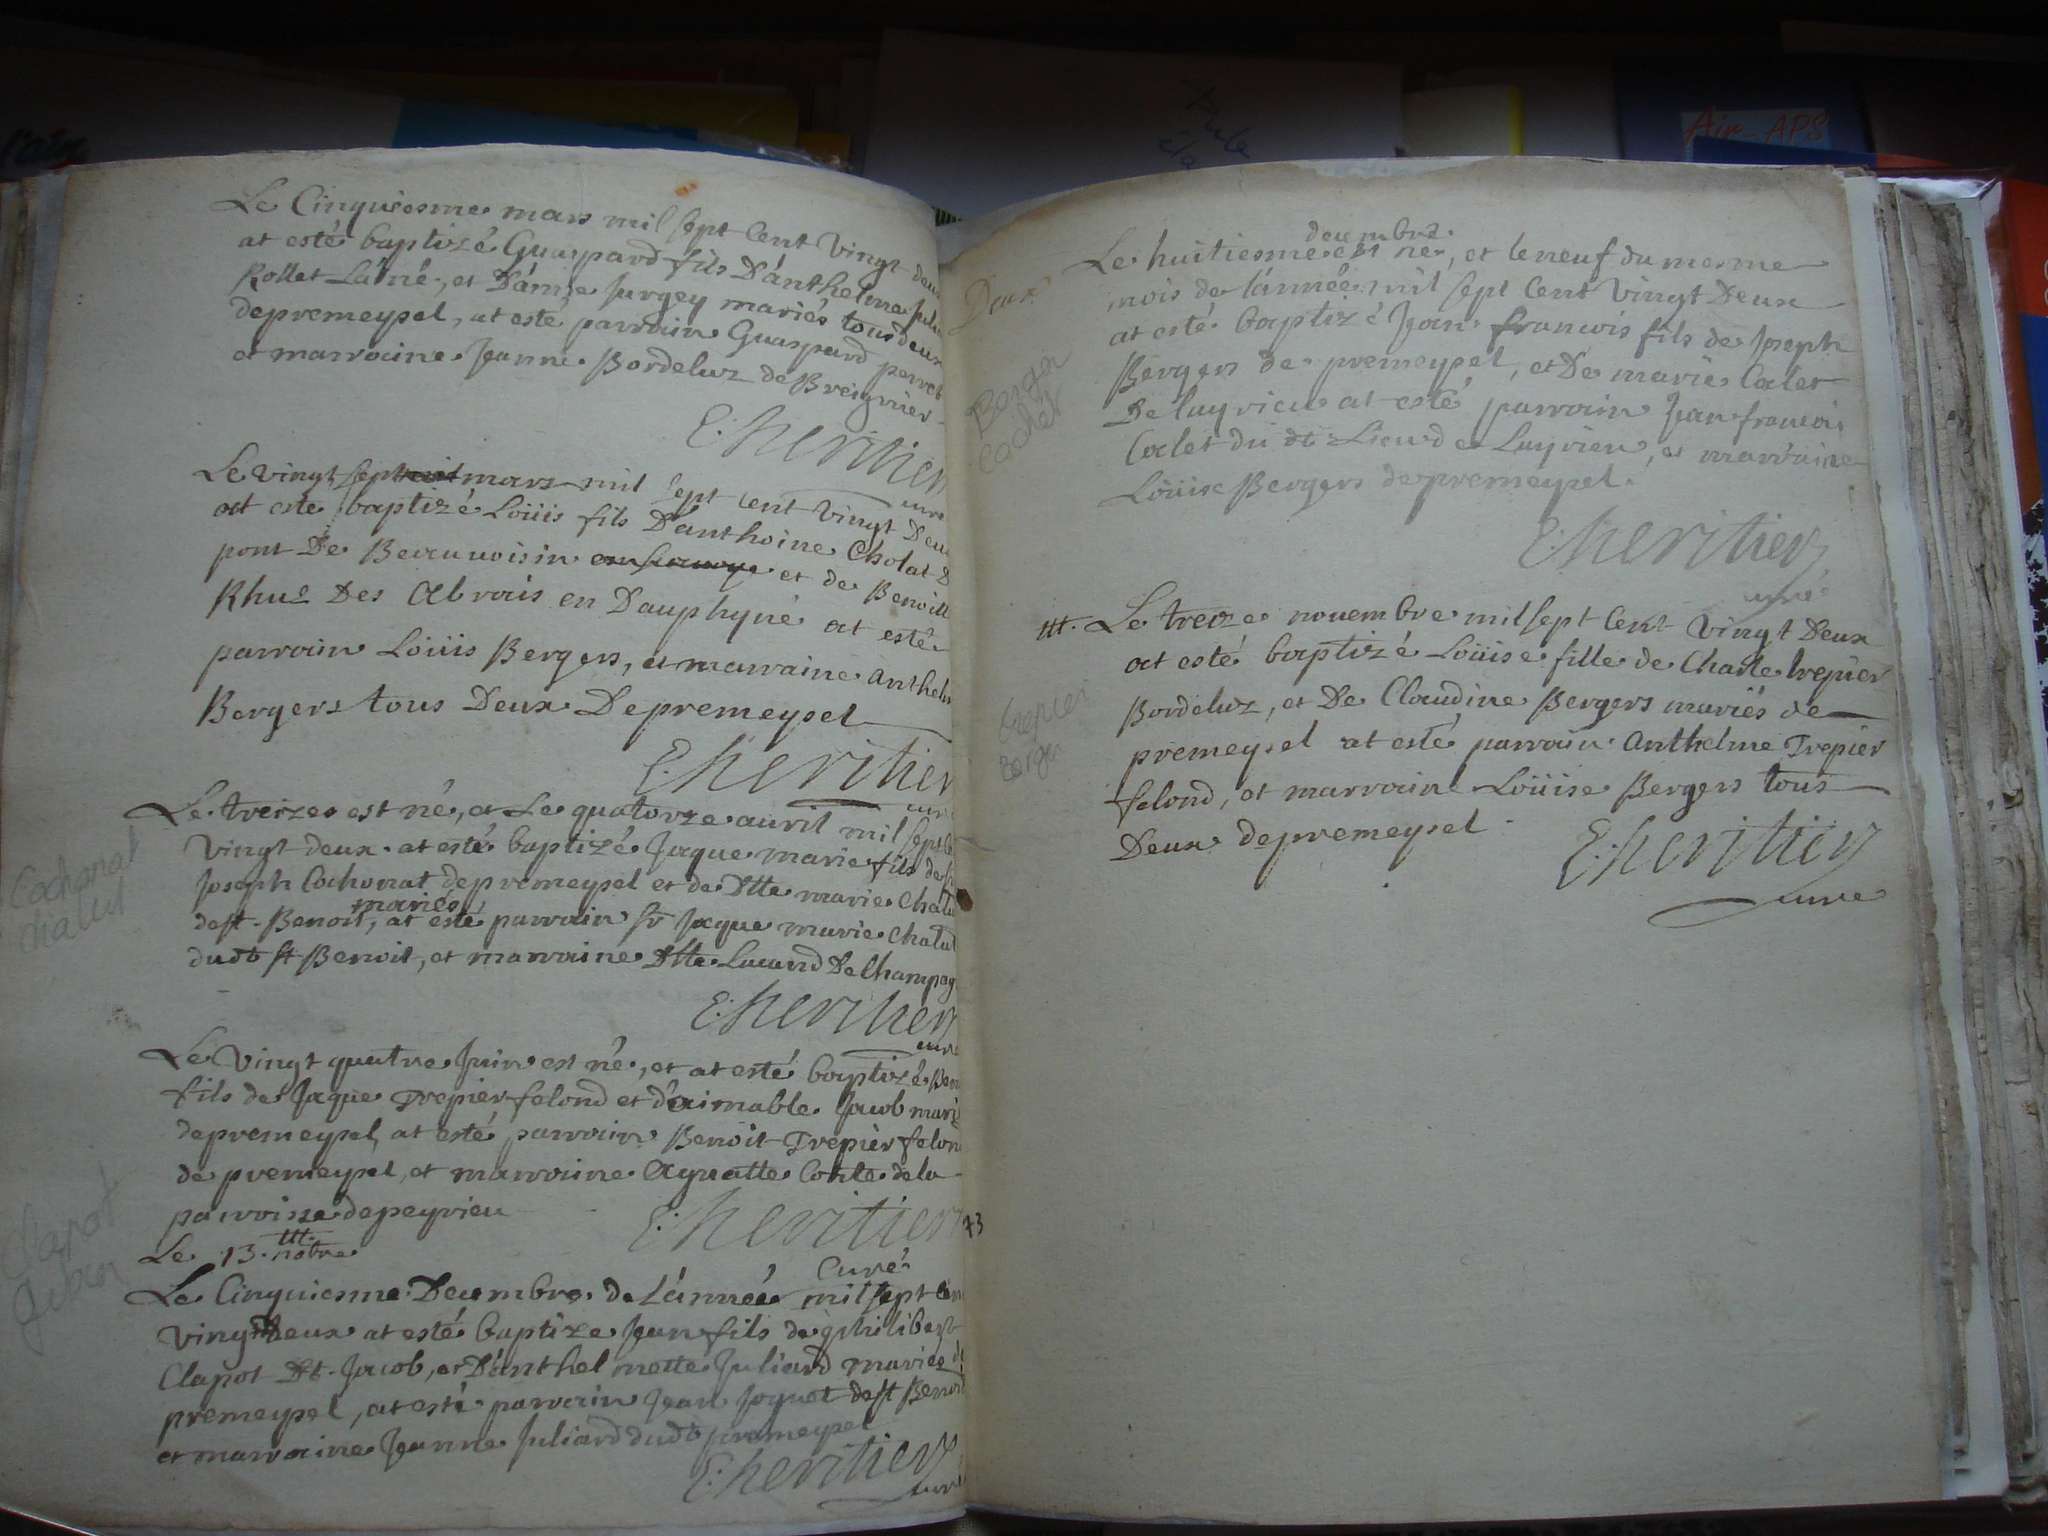 Air-APS
Le Cinquiesme mars mil sept Cent Vingt deux
at esté baptizé Guaspard fils D'anthelme
Rollet Lainé, et D'amie Jurgey mariés tous deux
depremeysel, at esté parrain Guaspard perret
et marraine Jeanne Bordeluz de Breignier
E: heritier
curé
Le Vingt sept mars mil sept cent Vingt Deux
at esté baptizé Loüis fils D'anthoine Cholat
pont De Beauuoisin et de Benoitte
Rhue Des Abrois en Dauphyné at esté
parrain Loüis Bergers, et marraine Anthel
Bergers tous Deux Depremeysel
E: heritier
curé
Le treize est né, et Le quatorze auril mil sept
Vingt deux at esté baptizé Jaque marie fils de
Joseph Cochonat depremeysel et de Dtte marie Chat
mariés
de st. Benoit, at esté parrain Sr Jaque marie Chatul
dudt st Benoit, et marraine Dtte Lucand De Champag
Cochonat
chatut
E: heritier
curé
Le Vingt quatre Juin est né, et at esté baptizé Ben
fils de Jaque Trepier felond et d'aimable Jacob mari
depremeysel, at esté parrain Benoit Trepier felon
de premeysel, et marraine Aguatte Conte de la
parroisse depeyrieu
E: heritier
73
ttt.
Le 13. nobre
curé
Le Cinquiesme Decembre de L'année mil sept Cen
Vingt Deux at esté baptize Jean fils de philibert
Clapot Dt. Jacob, et D'anthelmette Juliard mariés de
premeysel, at esté parrain Jean Joquet de st Benoit
et marraine Jeanne Juliard dudt premeysel
Clapot
E: heritier
curé
Deux
decembre
Le huitiesme est né, et le neuf du mesme
mois de l'année mil sept Cent Vingt Deux
at esté baptizé Jean francois fils de Joseph
Bergers de premeysel, et De marie Calet
De luyrieu at esté parrain Jean francois
Calet du dt Lieu de Luyrieu, et marraine
Loüise Bergers depremeysel.
Berger
Cachet
E: heritier
curé
ttt. Le treize nouembre mil sept Cent Vingt Deux
at esté baptizé Loüise fille de Charle trepier
Bordeluz, et De Claudine Bergers mariés de
premeysel at esté parrain Anthelme Trepier
felond, et marraine Loüise Bergers tous
Deux depremeysel
trepier
Berger
E: heritier
curé